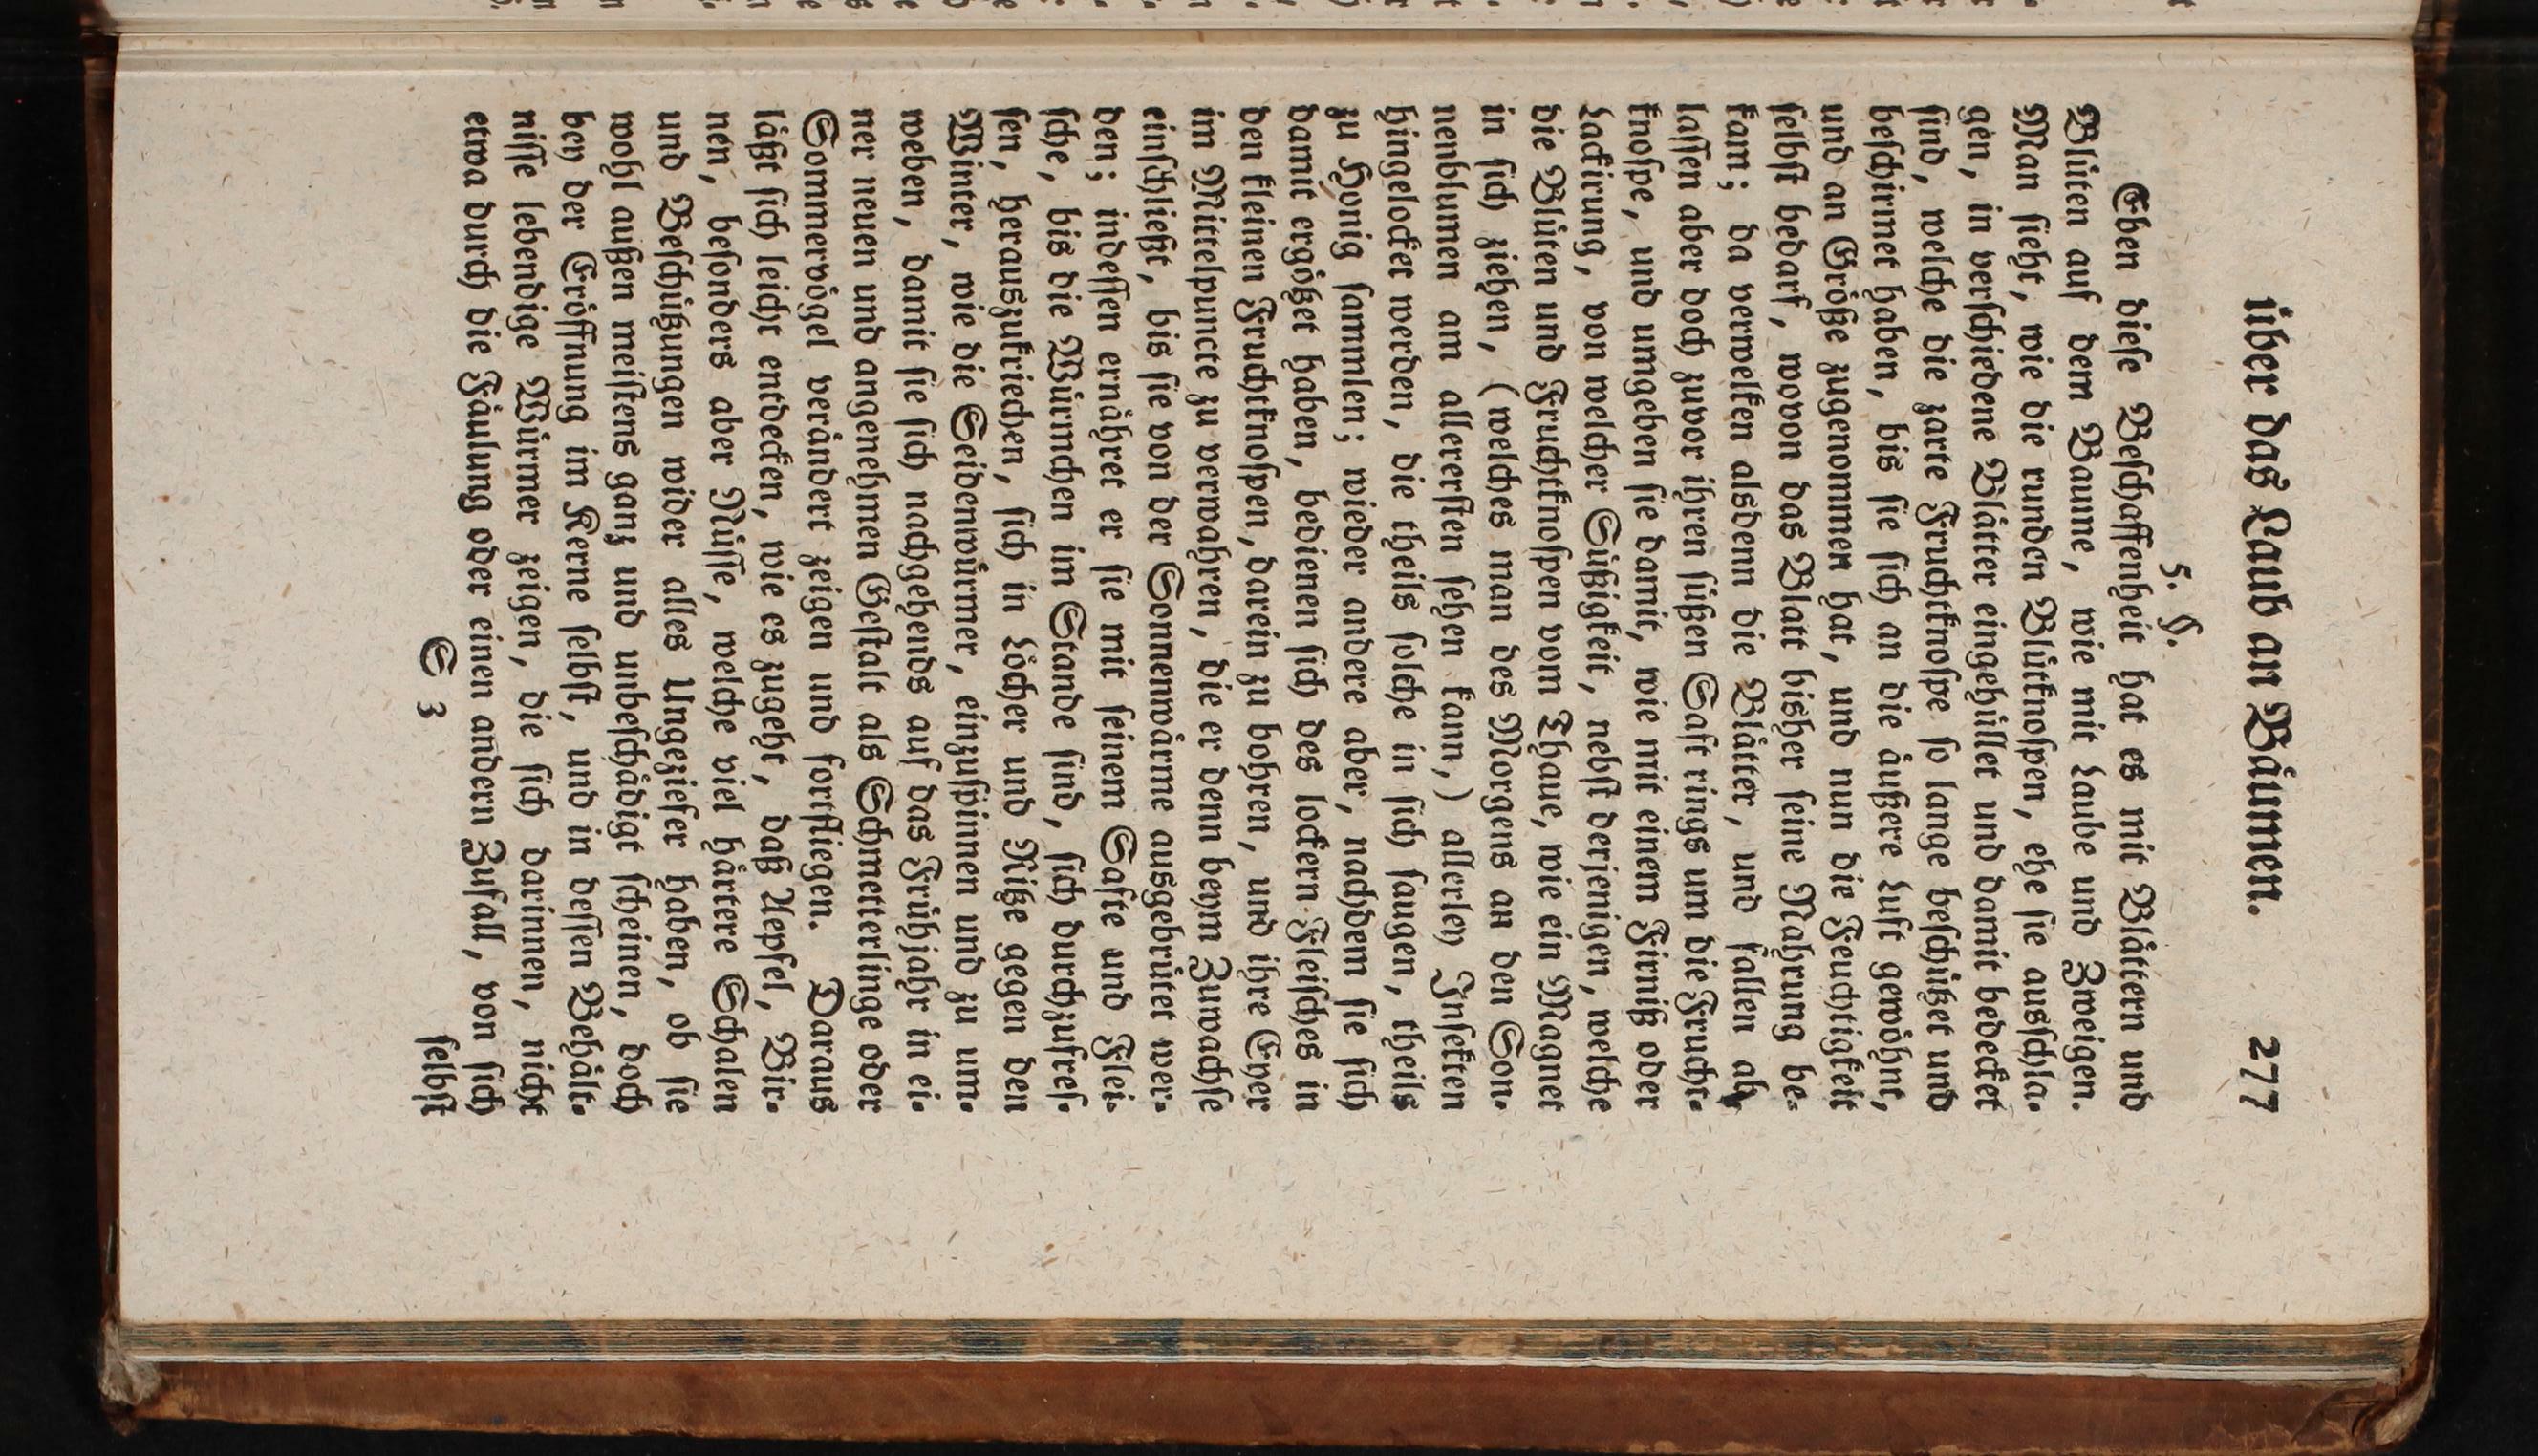 über das Laub an Bäumen. 277
5. §.
Eben dieſe Beſchaffenheit hat es mit Blättern und
Blüten auf dem Baume, wie mit Laube und Zweigen.
Man ſieht, wie die runden Blütknoſpen, ehe ſie ausſchla-
gen, in verſchiedene Blätter eingehüllet und damit bedecket
ſind, welche die zarte Fruchtknoſpe ſo lange beſchützet und
beſchirmet haben, bis ſie ſich an die äußere Luft gewöhnt,
und an Größe zugenommen hat, und nun die Feuchtigkeit
ſelbſt bedarf, wovon das Blatt bisher ſeine Nahrung be-
kam; da verwelken alsdenn die Blätter, und fallen ab,
laſſen aber doch zuvor ihren ſüßen Saft rings um die Frucht-
knoſpe, und umgeben ſie damit, wie mit einem Firniß oder
Lackirung, von welcher Süßigkeit, nebſt derjenigen, welche
die Blüten und Fruchtknoſpen vom Thaue, wie ein Magnet
in ſich ziehen, (welches man des Morgens an den Son-
nenblumen am allererſten ſehen kann,) allerley Inſekten
hingelocket werden, die theils ſolche in ſich ſaugen, theils
zu Honig ſammlen; wieder andere aber, nachdem ſie ſich
damit ergötzet haben, bedienen ſich des lockern Fleiſches in
den kleinen Fruchtknoſpen, darein zu bohren, und ihre Eyer
im Mittelpuncte zu verwahren, die er denn beym Zuwachſe
einſchließt, bis ſie von der Sonnenwärme ausgebrütet wer-
den; indeſſen ernähret er ſie mit ſeinem Safte und Flei-
ſche, bis die Würmchen im Stande ſind, ſich durchzufreſ-
ſen, herauszukriechen, ſich in Löcher und Ritze gegen den
Winter, wie die Seidenwürmer, einzuſpinnen und zu um-
weben, damit ſie ſich nachgehends auf das Frühjahr in ei-
ner neuen und angenehmen Geſtalt als Schmetterlinge oder
Sommervögel verändert zeigen und fortfliegen. Daraus
läßt ſich leicht entdecken, wie es zugeht, daß Aepfel, Bir-
nen, beſonders aber Nüſſe, welche viel härtere Schalen
und Beſchützungen wider alles Ungeziefer haben, ob ſie
wohl außen meiſtens ganz und unbeſchädigt ſcheinen, doch
bey der Eröffnung im Kerne ſelbſt, und in deſſen Behält-
niſſe lebendige Würmer zeigen, die ſich darinnen, nicht
etwa durch die Fäulung oder einen andern Zufall, von ſich
S 3 ſelbſt